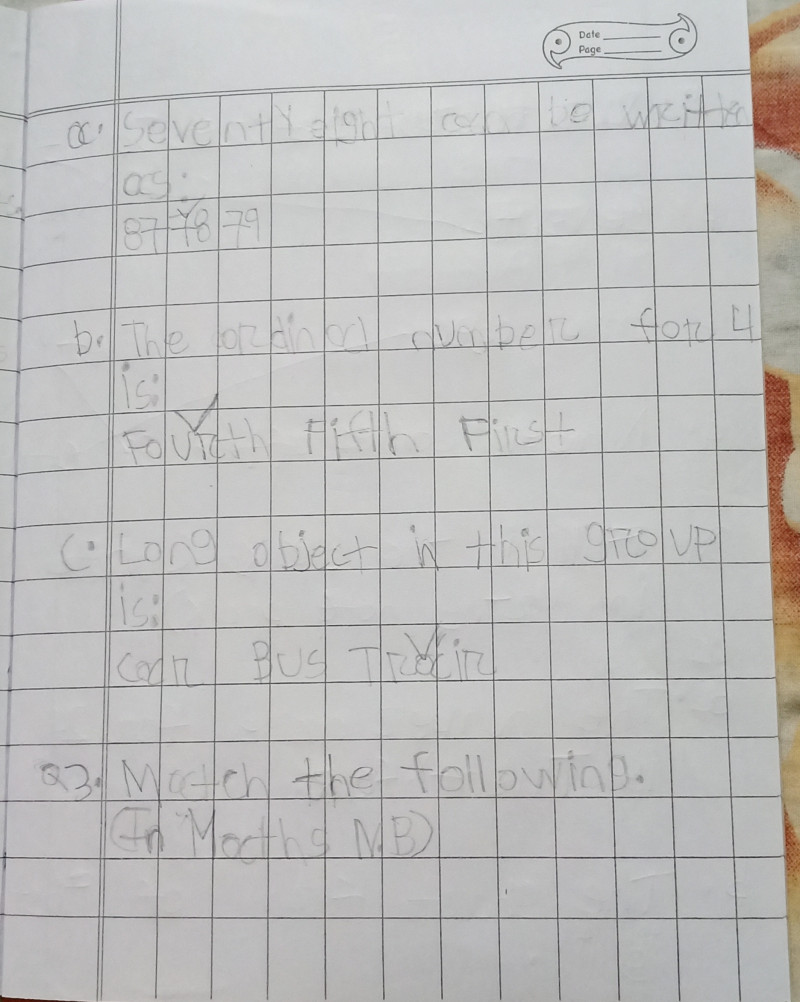 Date
Page
a. Seventy eight can be written
as:
87 78 79
b. The ordinal number for 4
is:
Fourth Fifth First
C. Long object in this group
is:
Car Bus Train
Q3. Match the following.
(In Maths N.B)